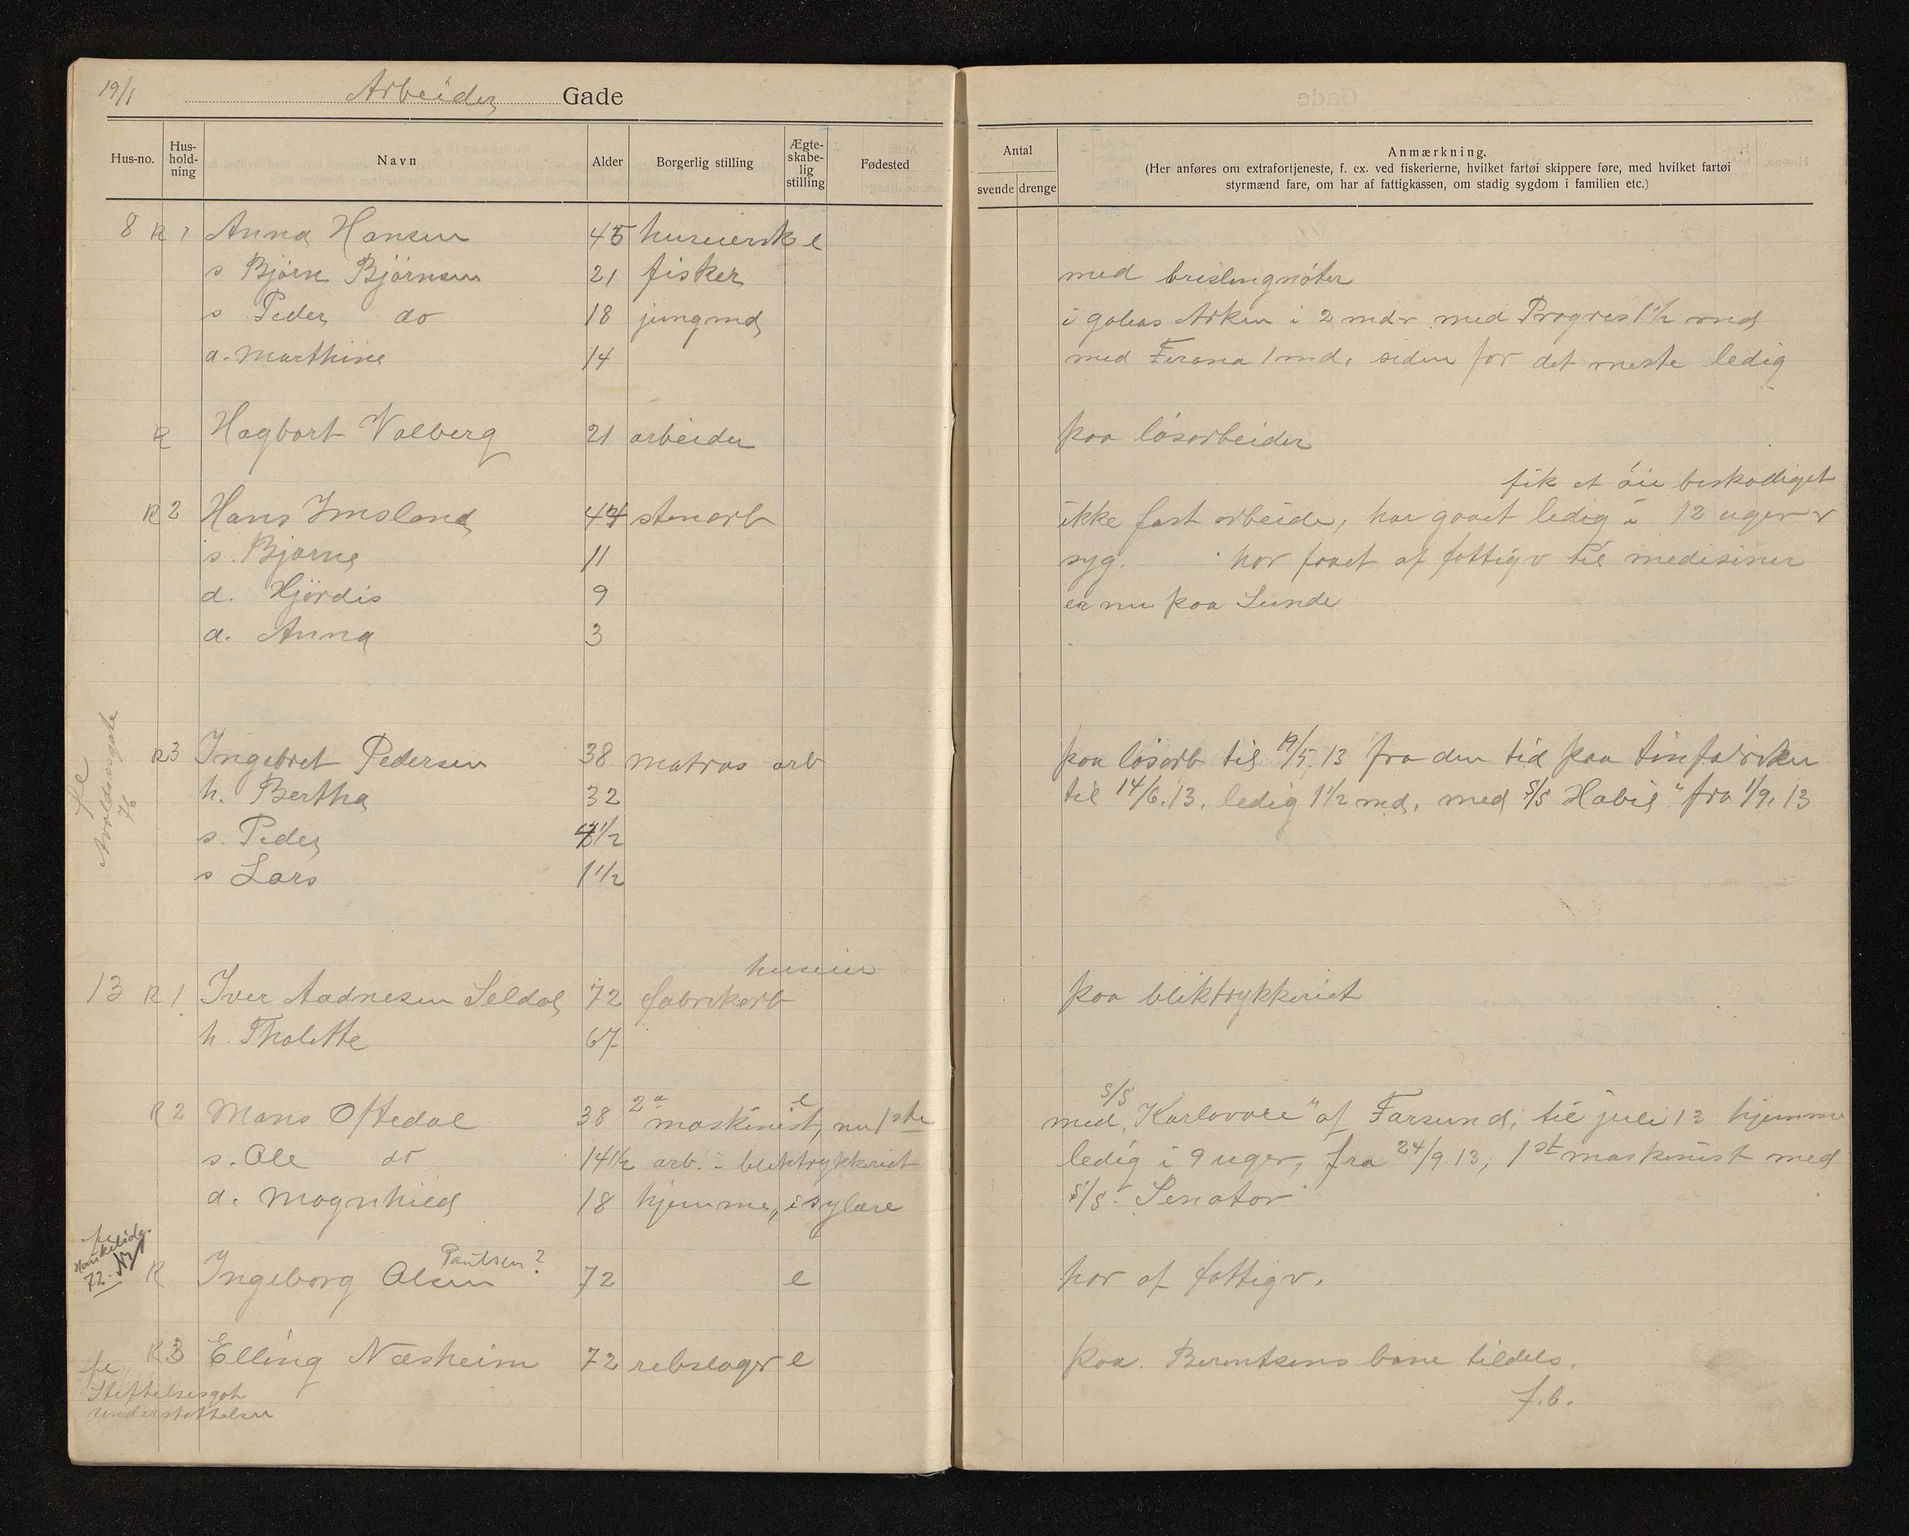 19/1 Arbeider Gade
Hus-no. Hus-hold-ning Navn Alder Borgerlig stilling Ægte-skabe-lig stilling Fødested
Antal svende drenge
Anmærkning.
(Her anføres om extrafortjeneste, f. ex. ved fiskerierne, hvilket fartøi skippere føre, med hvilket fartøi
styrmænd fare, om har af fattigkassen, om stadig sygdom i familien etc.)
8 R 1 Anna Hansen 45 huseiersk e
s Bjørn Bjørnsen 21 fisker med brislingnøter
s Peder do 18 jungmd i galeas Arken i 2 mdr med Progres 1 1/2 md
d. Marthine 14 med Ferana 1 md. siden for det meste ledig
R Hagbart Valberg 21 arbeider paa løsarbeider
fik et øie beskadiget
R 2 Hans Imsland 44 stenarb ikke fast arbeide, har gaaet ledig i 12 uger
s. Bjarne 11 syg. har faaet af fattigv til medisiner
d. Hjørdis 9 er nu paa Lunde
d. Anna 3
R 3 Ingebret Pedersen 38 matros arb paa løsarb til 19/5.13 fra den tid paa tinfabriken
h. Bertha 32 til 14/6.13, ledig 1 1/2 md, med S/S Habil" fra 1/9.13
s. Peder 1/2
s Lars 1 1/2
fl
76
huseier
13 R 1 Iver Aadnesen Seldal 72 fabrikarb paa bliktrykkeriet
h. Tholette 67
S/S
R 2 Mans Oftedal 38 2a maskinist, nu 1ste e med "Karlovare" af Farsund, til juli 13 hjemme
s. Ole do 14 1/2 arb. i bliktrykkeriet ledig i 9 uger, fra 24/9.13, 1st maskinist med
d. Magnhild 18 hjemme, i sylære S/S. Senator
fl
72 Ny
Paulsen?
R Ingeborg Olsen 72 e har af fattigv.
R 3 Elling Næsheim 72 rebslager e paa Berentsens bane tildels.
fl
Stiftelsesgt
understøttelsen
f.b.